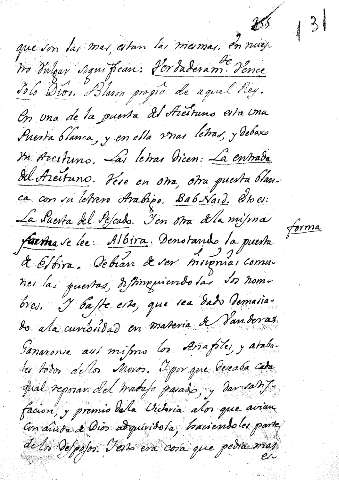 255
131
que son las mas, estan las mesmas. En nues
tro vulgar significan: Verdaderam.te Vence
Solo Dios. Blason propio de aquel Rey.
En una de la puerta del Azeituno esta una
Puerta blanca, y en ella unas letras, y debaxo
un Azeituno. Las letras dicen: La entrada
del Azeituno. Vese en otra, otra puerta blan
ca con su letrero Arabigo. Bab. Naid. Dice:
La Puerta del Pescado. Y en otra de la misma
forma se lee: Albira. Denotando la puerta
forma
de Elbira. Debian de ser insignias comu
nes las puertas, distinguiendo las los nom
bres. Y baste esto, que sea dado demasia
do a la curiosidad en materia de Vanderas.
Ganaronse asi mismo los Anafiles, y ataba
les todos de los Moros. Y por que deseaba cada
qual reposar del trabajo pasado, y dar satis
facion, y premio de la Victoria alos que avian
con ayuda de Dios adquiridola, haciendoles parte
de los despojos. Y esto era cosa que pedia mas
es-